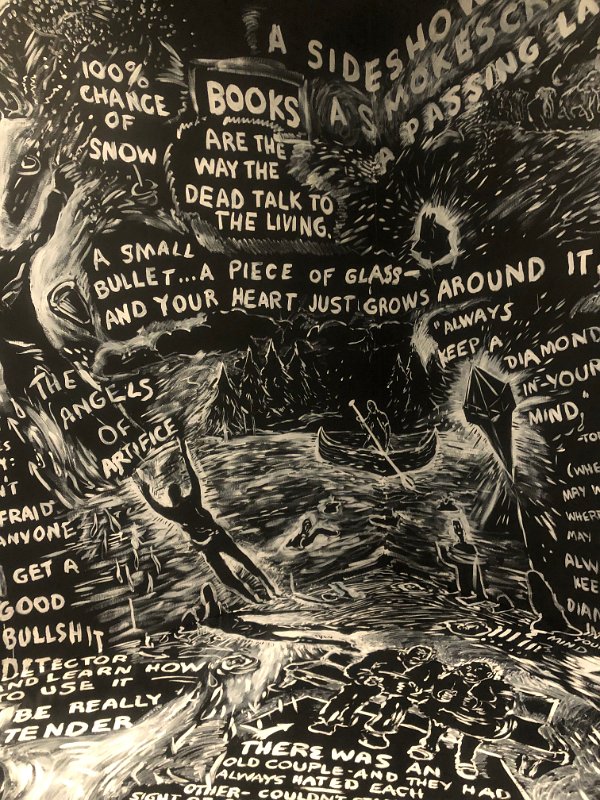 A SIDESHOW
A SMOKESCREEN
A PASSING LA
100%
CHANCE
OF
SNOW
BOOKS
ARE THE
WAY THE
DEAD TALK TO
THE LIVING.
A SMALL
BULLET...A PIECE OF GLASS—
AND YOUR HEART JUST GROWS AROUND IT.
"ALWAYS
KEEP A DIAMOND
IN YOUR
MIND,"
-TO
(WHE
MAY W
WHERE
MAY
ALW
KEE
DIAM
MIND
THE
ANGELS
OF
ARTIFICE
Y:
NT
FRAID
ANYONE
GET A
GOOD
BULLSHIT
DETECTOR
AND LEARN HOW
TO USE IT
BE REALLY
TENDER
THERE WAS AN
OLD COUPLE-AND THEY HAD
ALWAYS HATED EACH
OTHER- COULDN'T
SIGHT OF